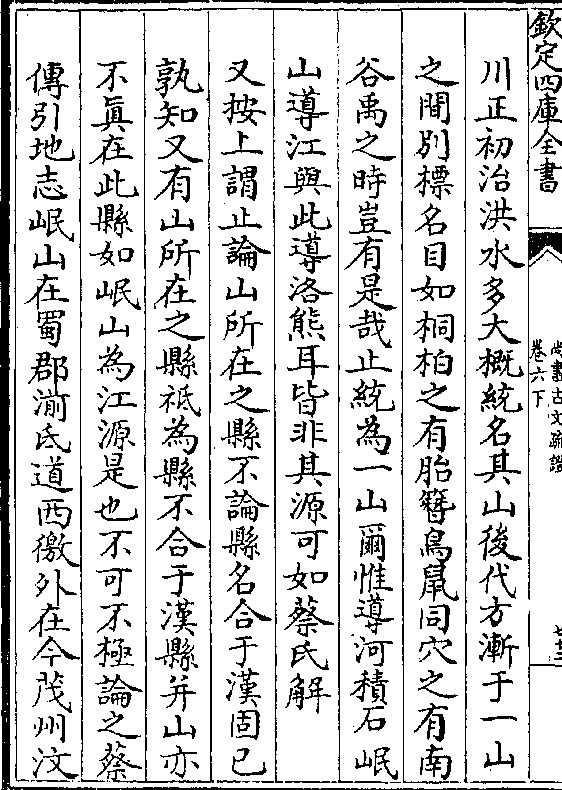 欽定四庫全書
尚書古文疏證
卷六下
七十三
川正初治洪水多大概統名其山後代方漸于一山
之間別標名目如桐柏之有胎簪鳥鼠同穴之有南
谷禹之時豈有是哉止統為一山爾惟導河積石岷
山導江與此導洛熊耳皆非其源可如蔡氏解
又按上謂止論山所在之縣不論縣名合于漢固已
孰知又有山所在之縣祇為縣不合于漢縣并山亦
不眞在此縣如岷山為江源是也不可不極論之蔡
傳引地志岷山在蜀郡湔氐道西徼外在今茂州汶